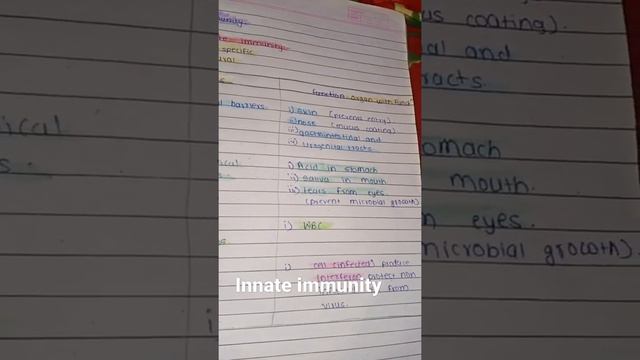 munity.
te immunity.
specific
ural
function organ with Fund
barriers.
i) skin (prevents entry)
ii) nose (mucus coating)
iii) gastrointestinal and
iv) urogenital tracts
ical
i) Acid in stomach
ii) saliva in mouth
iii) tears from eyes.
(prevent microbial growth)
i) WBC
i) cell (infected) produce
interferon protect non
from
virus.
Innate immunity
ical
s.
cus coating).
al and
racts.
omach
mouth.
eyes.
microbial growth).